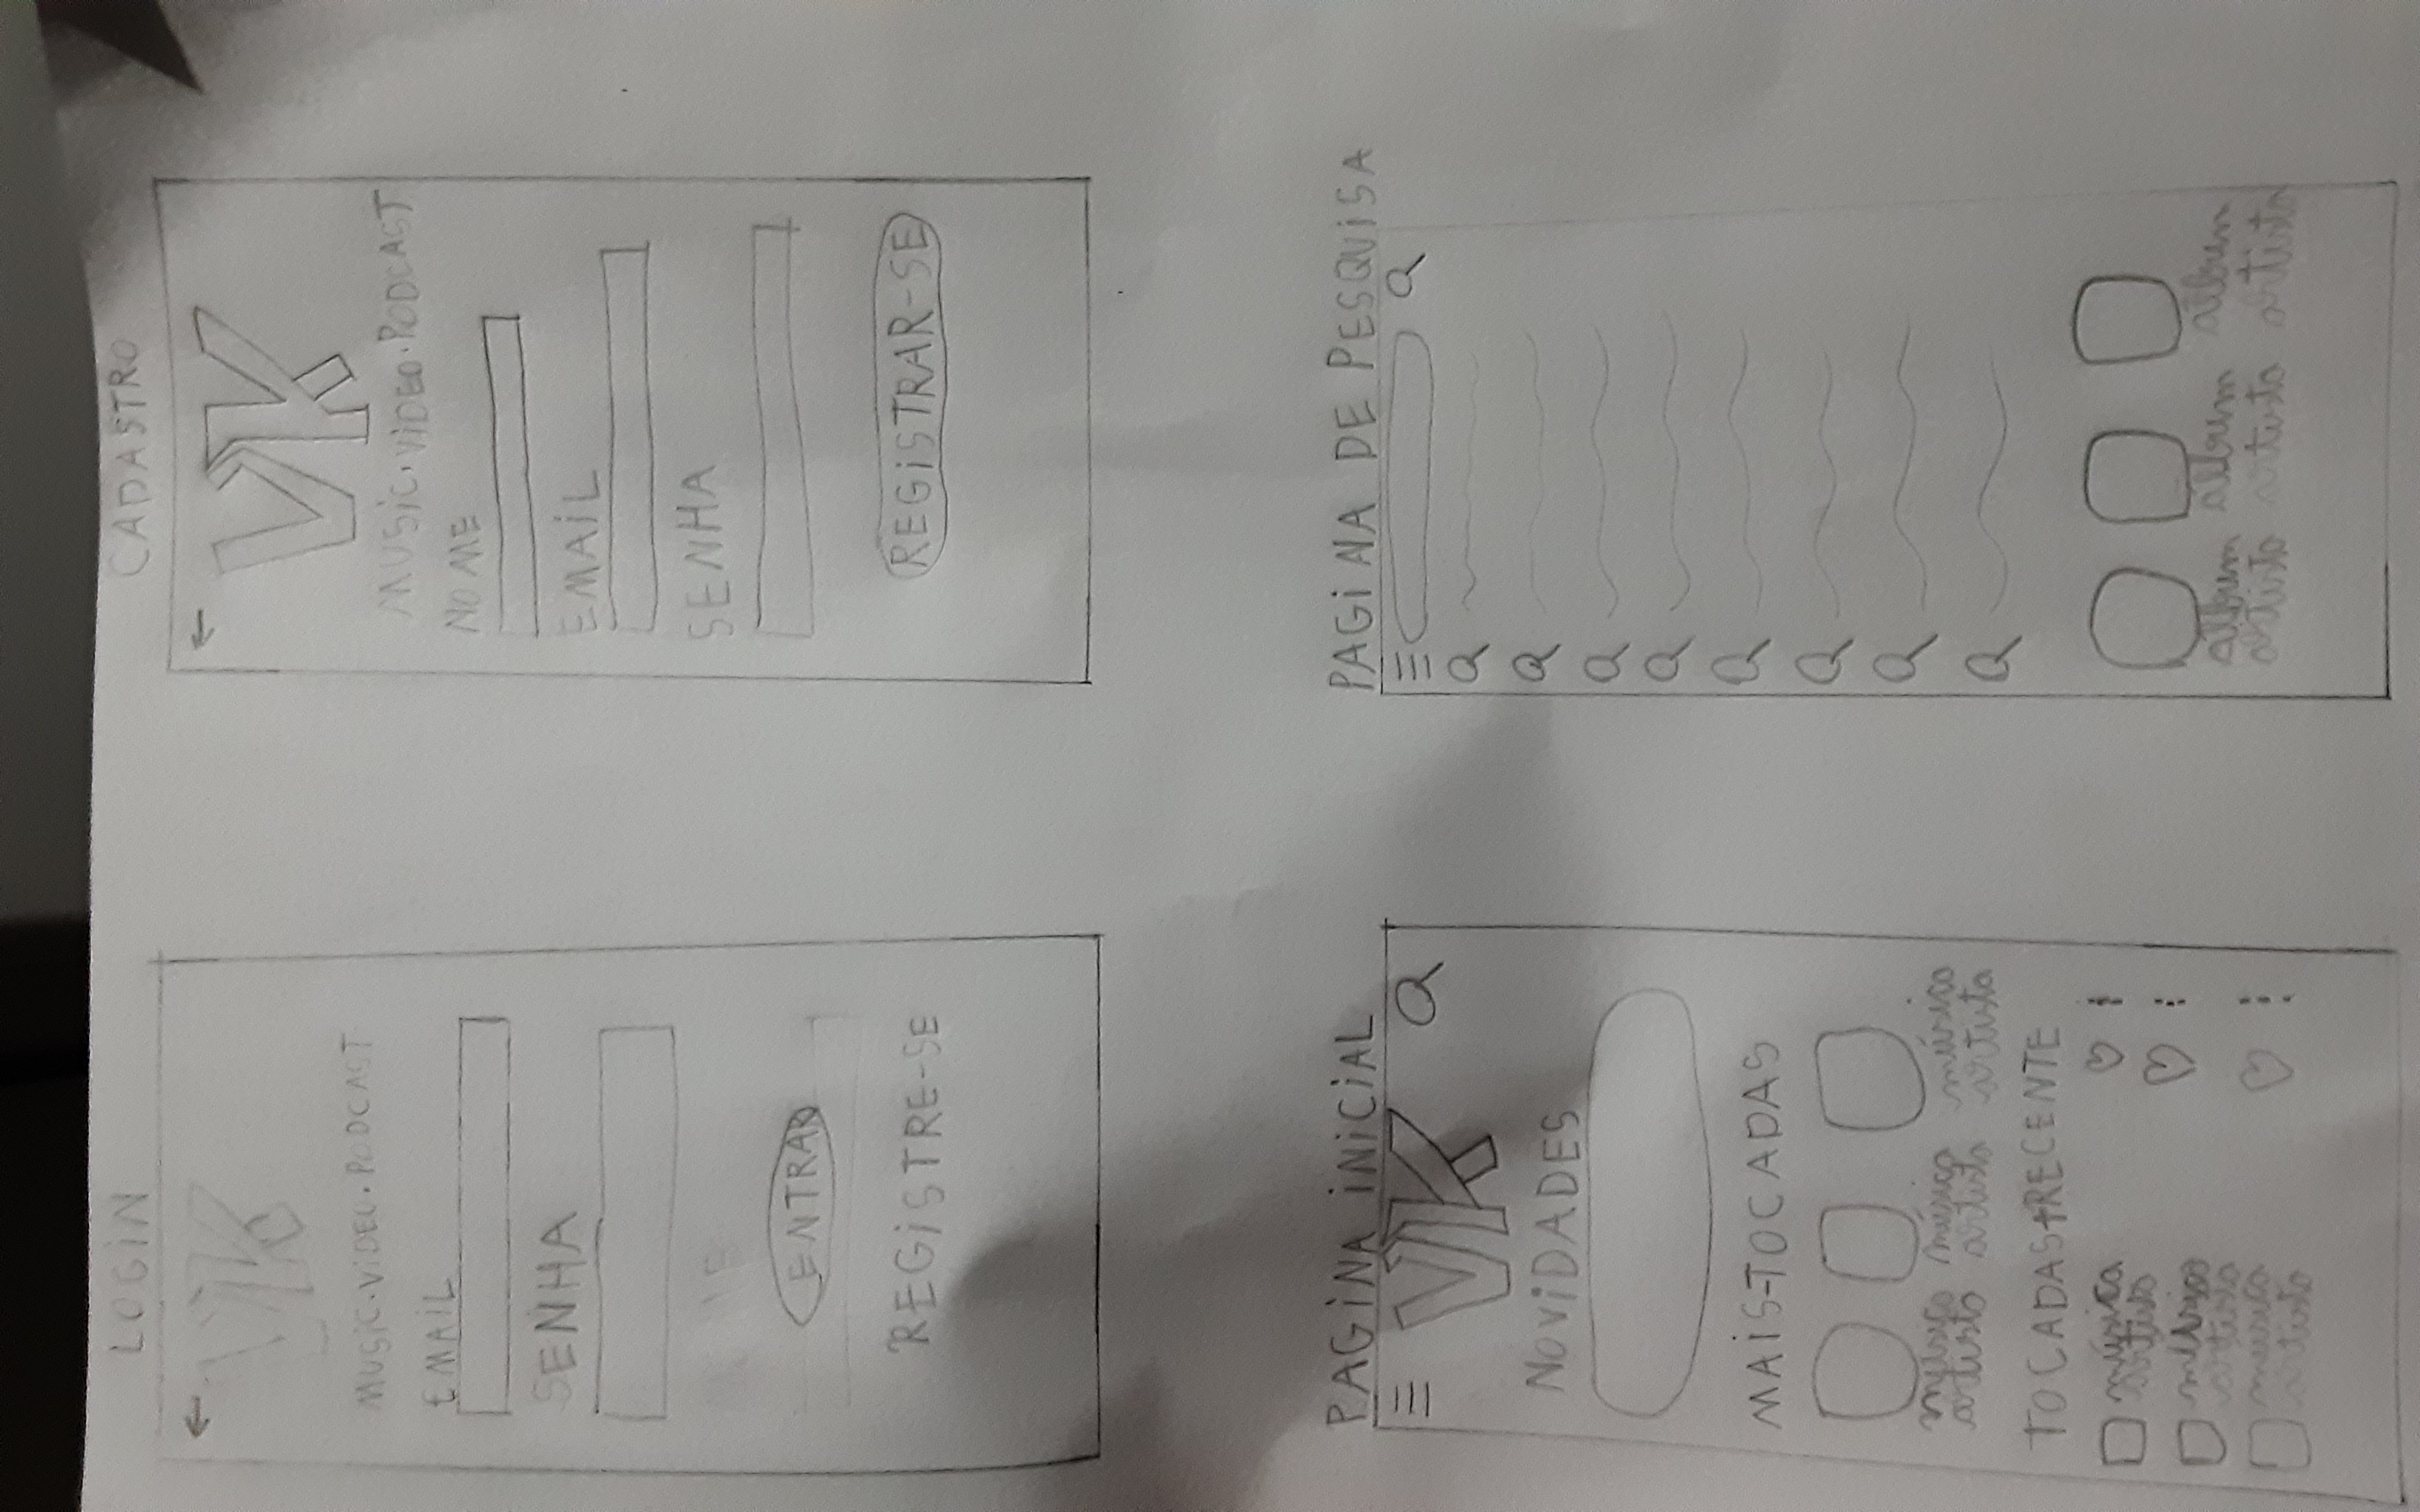 LOGIN
VK
MUSIC.VIDEO.PODCAST
EMAIL
SENHA
ENTRAR
REGISTRE-SE
CADASTRO
VK
MUSIC.VIDEO.PODCAST
NOME
EMAIL
SENHA
REGISTRAR-SE
PAGINA INICIAL
VK
NOVIDADES
MAIS-TOCADAS
música música música
artista artista artista
TOCADAS+RECENTE
música
artista
música
artista
música
artista
PAGINA DE PESQUISA
álbum álbum álbum
artista artista artista